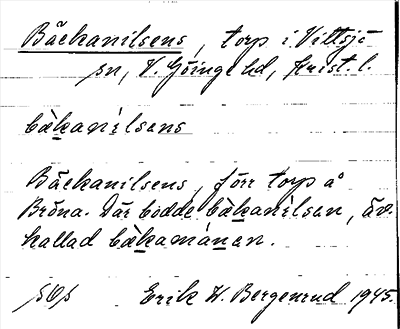 Bäckanilsens, torp i Vittsjö
sn, V. Göinge hd, Krist. l.
bäkanilsens
Bäckanilsens, förr torp å
Bröna. Där bodde bäkanilsan, äv.
kallad bäkamánan.
sOs Erik W. Bergenrud 1945.